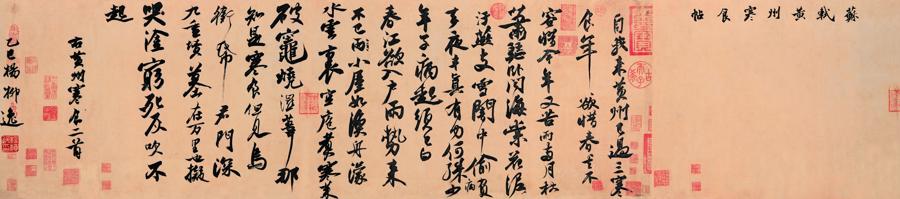 蘇軾黃州寒食帖
自我来黄州已過三寒
食年〻欲惜春〻去不
容惜今年又苦雨兩月秋
蕭瑟卧聞海棠花泥
汙燕支雪闇中偷負
去夜半真有力何殊少
病
年子病起須已白
春江欲入户雨勢来
不已雨小屋如漁舟濛〻
水雲裏空庖煮寒菜
破竈燒濕葦那
知是寒食但見烏
銜帋 君門深
九重墳墓在万里也擬
哭塗窮死灰吹不
起
右黄州寒食二首
乙巳